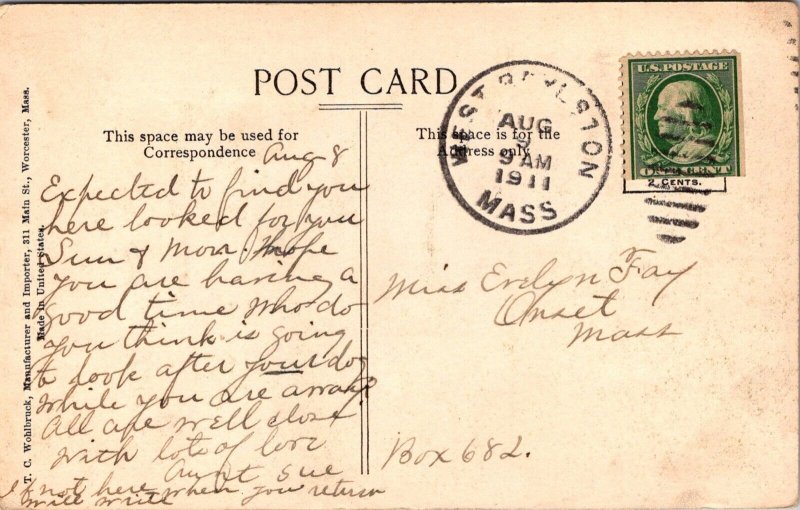 POST CARD
This space may be used for
Correspondence
This space is for the
Address only
WEST BOYLSTON
AUG
9
9 AM
1911
MASS
U.S. POSTAGE
ONE CENT
2 CENTS.
T. C. Wohlbruck, Manufacturer and Importer, 311 Main St., Worcester, Mass.
Made in United States.
Aug 8
Expected to find you
here looked for you
Sun & Mon. hope
you are having a
good time who do
you think is going
to look after your dog
while you are away?
All are well close
with lots of love
Aunt Sue
if not here when you return
will write
Miss Evelyn Fay
Onset
Mass
Box 682.